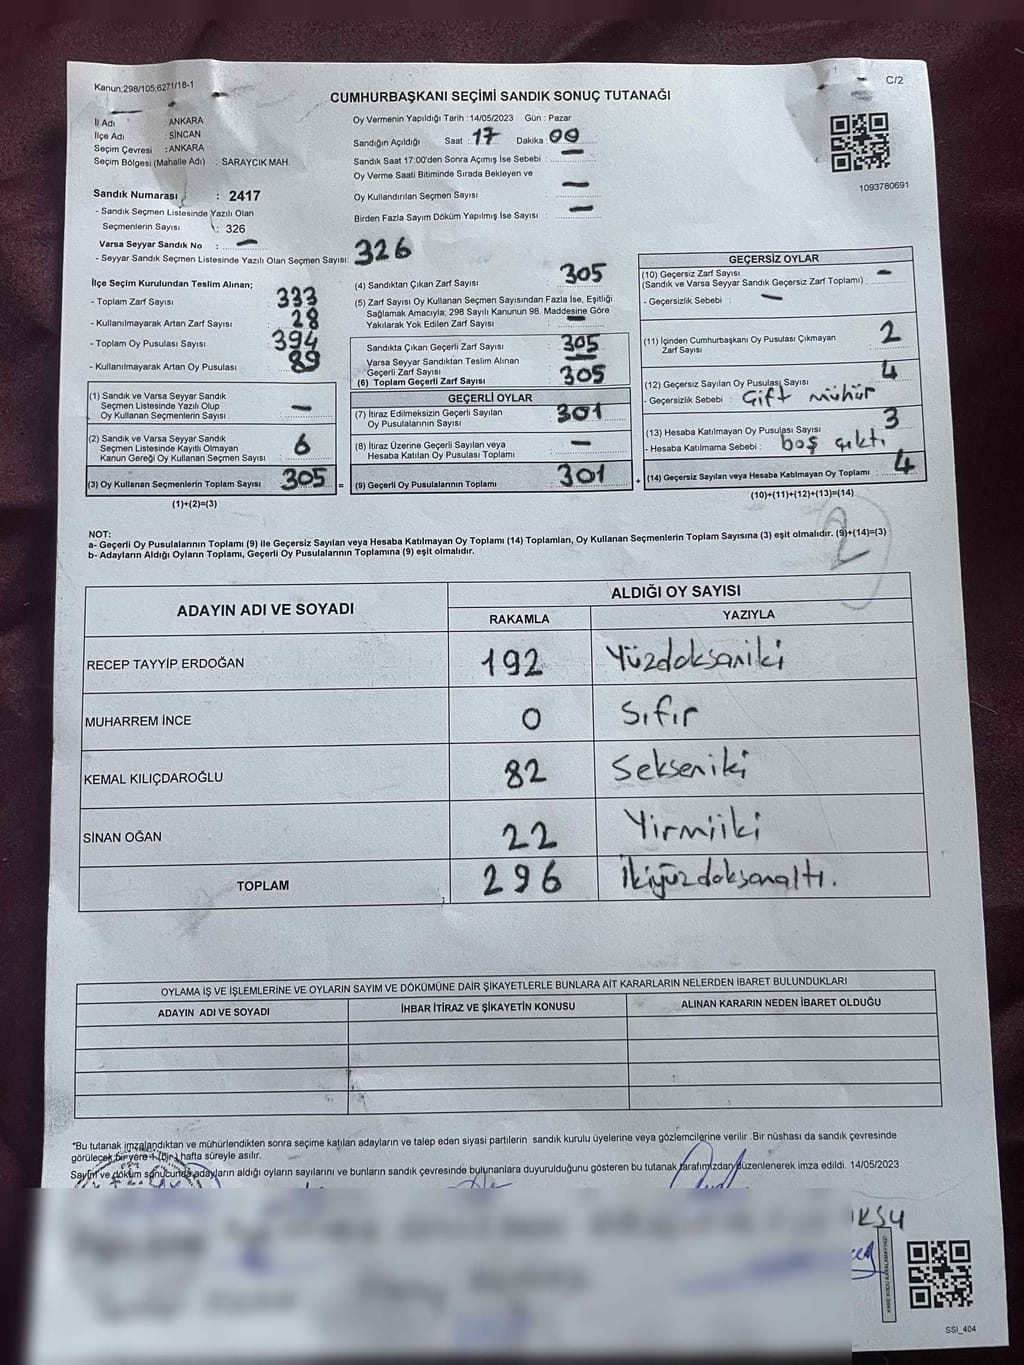 Kanun;298/105,6271/18-1
C/2
CUMHURBAŞKANI SEÇİMİ SANDIK SONUÇ TUTANAĞI
İl Adı : ANKARA
İlçe Adı : SİNCAN
Seçim Çevresi : ANKARA
Seçim Bölgesi (Mahalle Adı) : SARAYCIK MAH.
Oy Vermenin Yapıldığı Tarih : 14/05/2023 Gün : Pazar
Sandığın Açıldığı Saat : 17 Dakika : 00
Sandık Saat 17:00'den Sonra Açımış İse Sebebi : —
Oy Verme Saati Bitiminde Sırada Bekleyen ve
Oy Kullandırılan Seçmen Sayısı : —
Birden Fazla Sayım Döküm Yapılmış İse Sayısı : —
1093780691
Sandık Numarası : 2417
- Sandık Seçmen Listesinde Yazılı Olan
Seçmenlerin Sayısı : 326
Varsa Seyyar Sandık No : —
- Seyyar Sandık Seçmen Listesinde Yazılı Olan Seçmen Sayısı: 326
İlçe Seçim Kurulundan Teslim Alınan;
- Toplam Zarf Sayısı : 333
- Kullanılmayarak Artan Zarf Sayısı : 28
- Toplam Oy Pusulası Sayısı : 394
- Kullanılmayarak Artan Oy Pusulası : 89
(1) Sandık ve Varsa Seyyar Sandık
Seçmen Listesinde Yazılı Olup
Oy Kullanan Seçmenlerin Sayısı : —
(2) Sandık ve Varsa Seyyar Sandık
Seçmen Listesinde Kayıtlı Olmayan
Kanun Gereği Oy Kullanan Seçmen Sayısı : 6
(3) Oy Kullanan Seçmenlerin Toplam Sayısı : 305 =
(1)+(2)=(3)
(4) Sandıktan Çıkan Zarf Sayısı : 305
(5) Zarf Sayısı Oy Kullanan Seçmen Sayısından Fazla İse, Eşitliği
Sağlamak Amacıyla; 298 Sayılı Kanunun 98. Maddesine Göre
Yakılarak Yok Edilen Zarf Sayısı : —
Sandıkta Çıkan Geçerli Zarf Sayısı : 305
Varsa Seyyar Sandıktan Teslim Alınan
Geçerli Zarf Sayısı : —
(6) Toplam Geçerli Zarf Sayısı : 305
GEÇERLİ OYLAR
(7) İtiraz Edilmeksizin Geçerli Sayılan
Oy Pusulalarının Sayısı : 301
(8) İtiraz Üzerine Geçerli Sayılan veya
Hesaba Katılan Oy Pusulası Toplamı : —
(9) Geçerli Oy Pusulalarının Toplamı : 301 +
GEÇERSİZ OYLAR
(10) Geçersiz Zarf Sayısı
(Sandık ve Varsa Seyyar Sandık Geçersiz Zarf Toplamı) : —
- Geçersizlik Sebebi : —
(11) İçinden Cumhurbaşkanı Oy Pusulası Çıkmayan
Zarf Sayısı : 2
(12) Geçersiz Sayılan Oy Pusulası Sayısı : 4
- Geçersizlik Sebebi : Çift mühür
(13) Hesaba Katılmayan Oy Pusulası Sayısı : 3
- Hesaba Katılmama Sebebi : boş çıktı
(14) Geçersiz Sayılan veya Hesaba Katılmayan Oy Toplamı : 4
(10)+(11)+(12)+(13)=(14)
2
NOT:
a- Geçerli Oy Pusulalarının Toplamı (9) ile Geçersiz Sayılan veya Hesaba Katılmayan Oy Toplamı (14) Toplamları, Oy Kullanan Seçmenlerin Toplam Sayısına (3) eşit olmalıdır. (9)+(14)=(3)
b- Adayların Aldığı Oyların Toplamı, Geçerli Oy Pusulalarının Toplamına (9) eşit olmalıdır.
ADAYIN ADI VE SOYADI
ALDIĞI OY SAYISI
RAKAMLA YAZIYLA
RECEP TAYYİP ERDOĞAN 192 Yüzdoksaniki
MUHARREM İNCE 0 Sıfır
KEMAL KILIÇDAROĞLU 82 Sekseniki
SİNAN OĞAN 22 Yirmiiki
TOPLAM 296 İkiyüzdoksanaltı.
OYLAMA İŞ VE İŞLEMLERİNE VE OYLARIN SAYIM VE DÖKÜMÜNE DAİR ŞİKAYETLERLE BUNLARA AİT KARARLARIN NELERDEN İBARET BULUNDUKLARI
ADAYIN ADI VE SOYADI İHBAR İTİRAZ VE ŞİKAYETİN KONUSU ALINAN KARARIN NEDEN İBARET OLDUĞU
*Bu tutanak imzalandıktan ve mühürlendikten sonra seçime katılan adayların ve talep eden siyasi partilerin sandık kurulu üyelerine veya gözlemcilerine verilir .Bir nüshası da sandık çevresinde
görülecek bir yere 1 (bir) hafta süreyle asılır.
Sayım ve döküm sonucunda adayların aldığı oyların sayılarını ve bunların sandık çevresinde bulunanlara duyurulduğunu gösteren bu tutanak tarafımızdan düzenlenerek imza edildi. 14/05/2023
KARE KODU KARALAMAYINIZ!
SSI_404